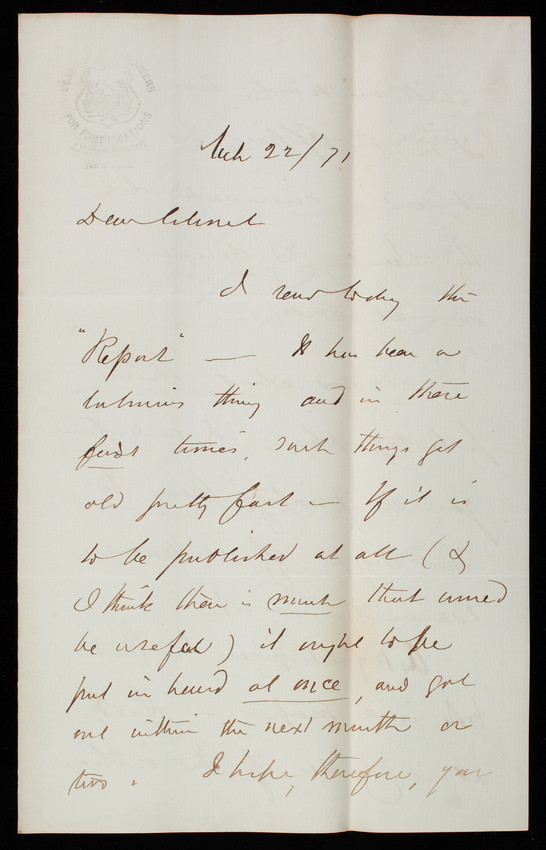 FOR FORTIFICATIONS
Mch 22/71
Dear Colonel
I send today the
"Report" — It has been a
laborious thing and in these
fast times, such things get
old pretty fast — If it is
to be published at all (&
I think there is much that would
be useful) it ought to be
put in hand at once, and got
out within the next month or
two. I hope, therefore, you